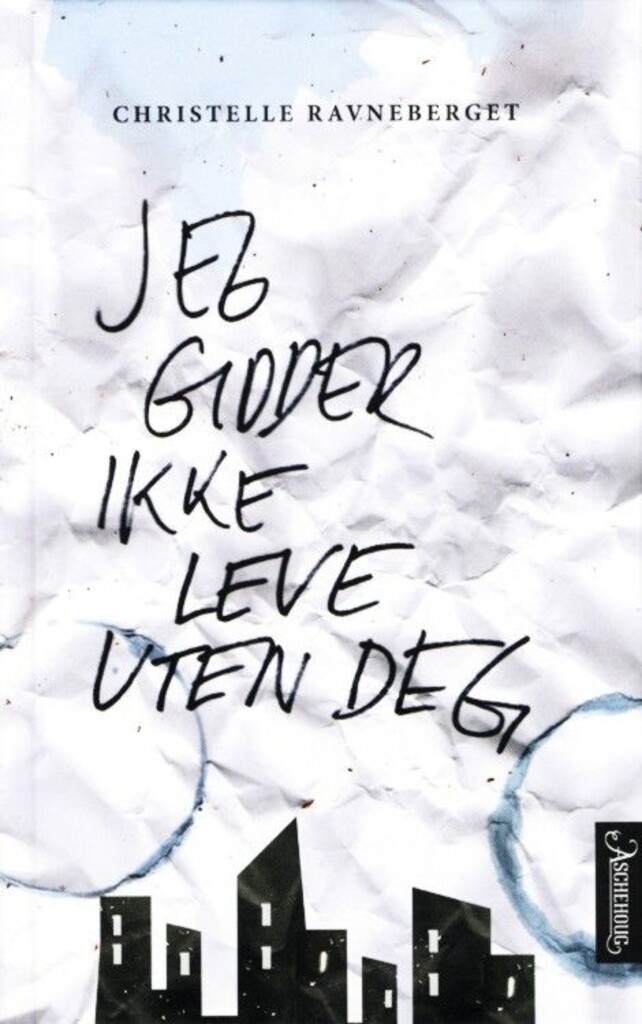 CHRISTELLE RAVNEBERGET
JEG
GIDDER
IKKE
LEVE
UTEN DEG
ASCHEHOUG